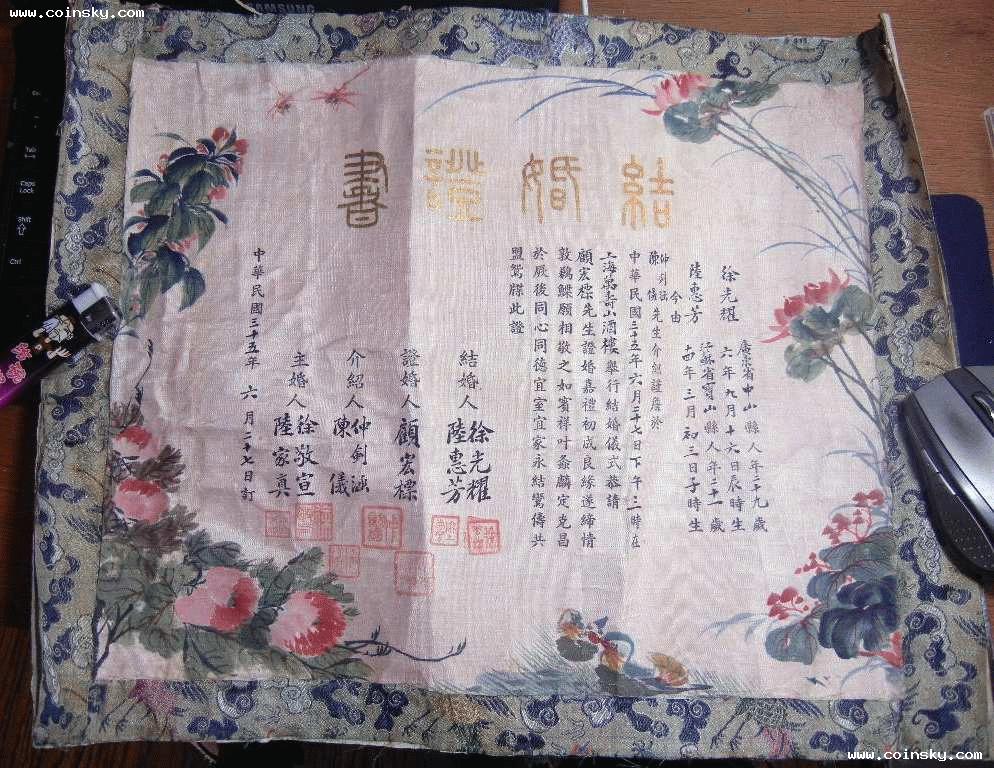 www.coinsky.com
SAMSUNG
Tab
Caps Lock
Shift
Ctrl
結婚證書
徐光耀 廣東省中山縣人年三十九歲
六年九月十六日辰時生
陸惠芳 江蘇省寶山縣人年二十一歲
十四年三月初三日子時生
今由
仲剑涵
陳儀先生介紹謹詹於
中華民國三十五年六月二十七日下午三時在
上海萬壽山酒樓舉行結婚儀式恭請
顧宏標先生證婚嘉禮初成良緣遂締情
敦鶼鰈願相敬之如賓祥叶螽麟定克昌
於厥後同心同德宜室宜家永結鸞儔共
盟鴛牒此證
結婚人 徐光耀 陸惠芳
證婚人 顧宏標
介紹人 仲剑涵 陳儀
主婚人 徐敬宣 陸家真
中華民國三十五年六月二十七日訂
www.coinsky.com